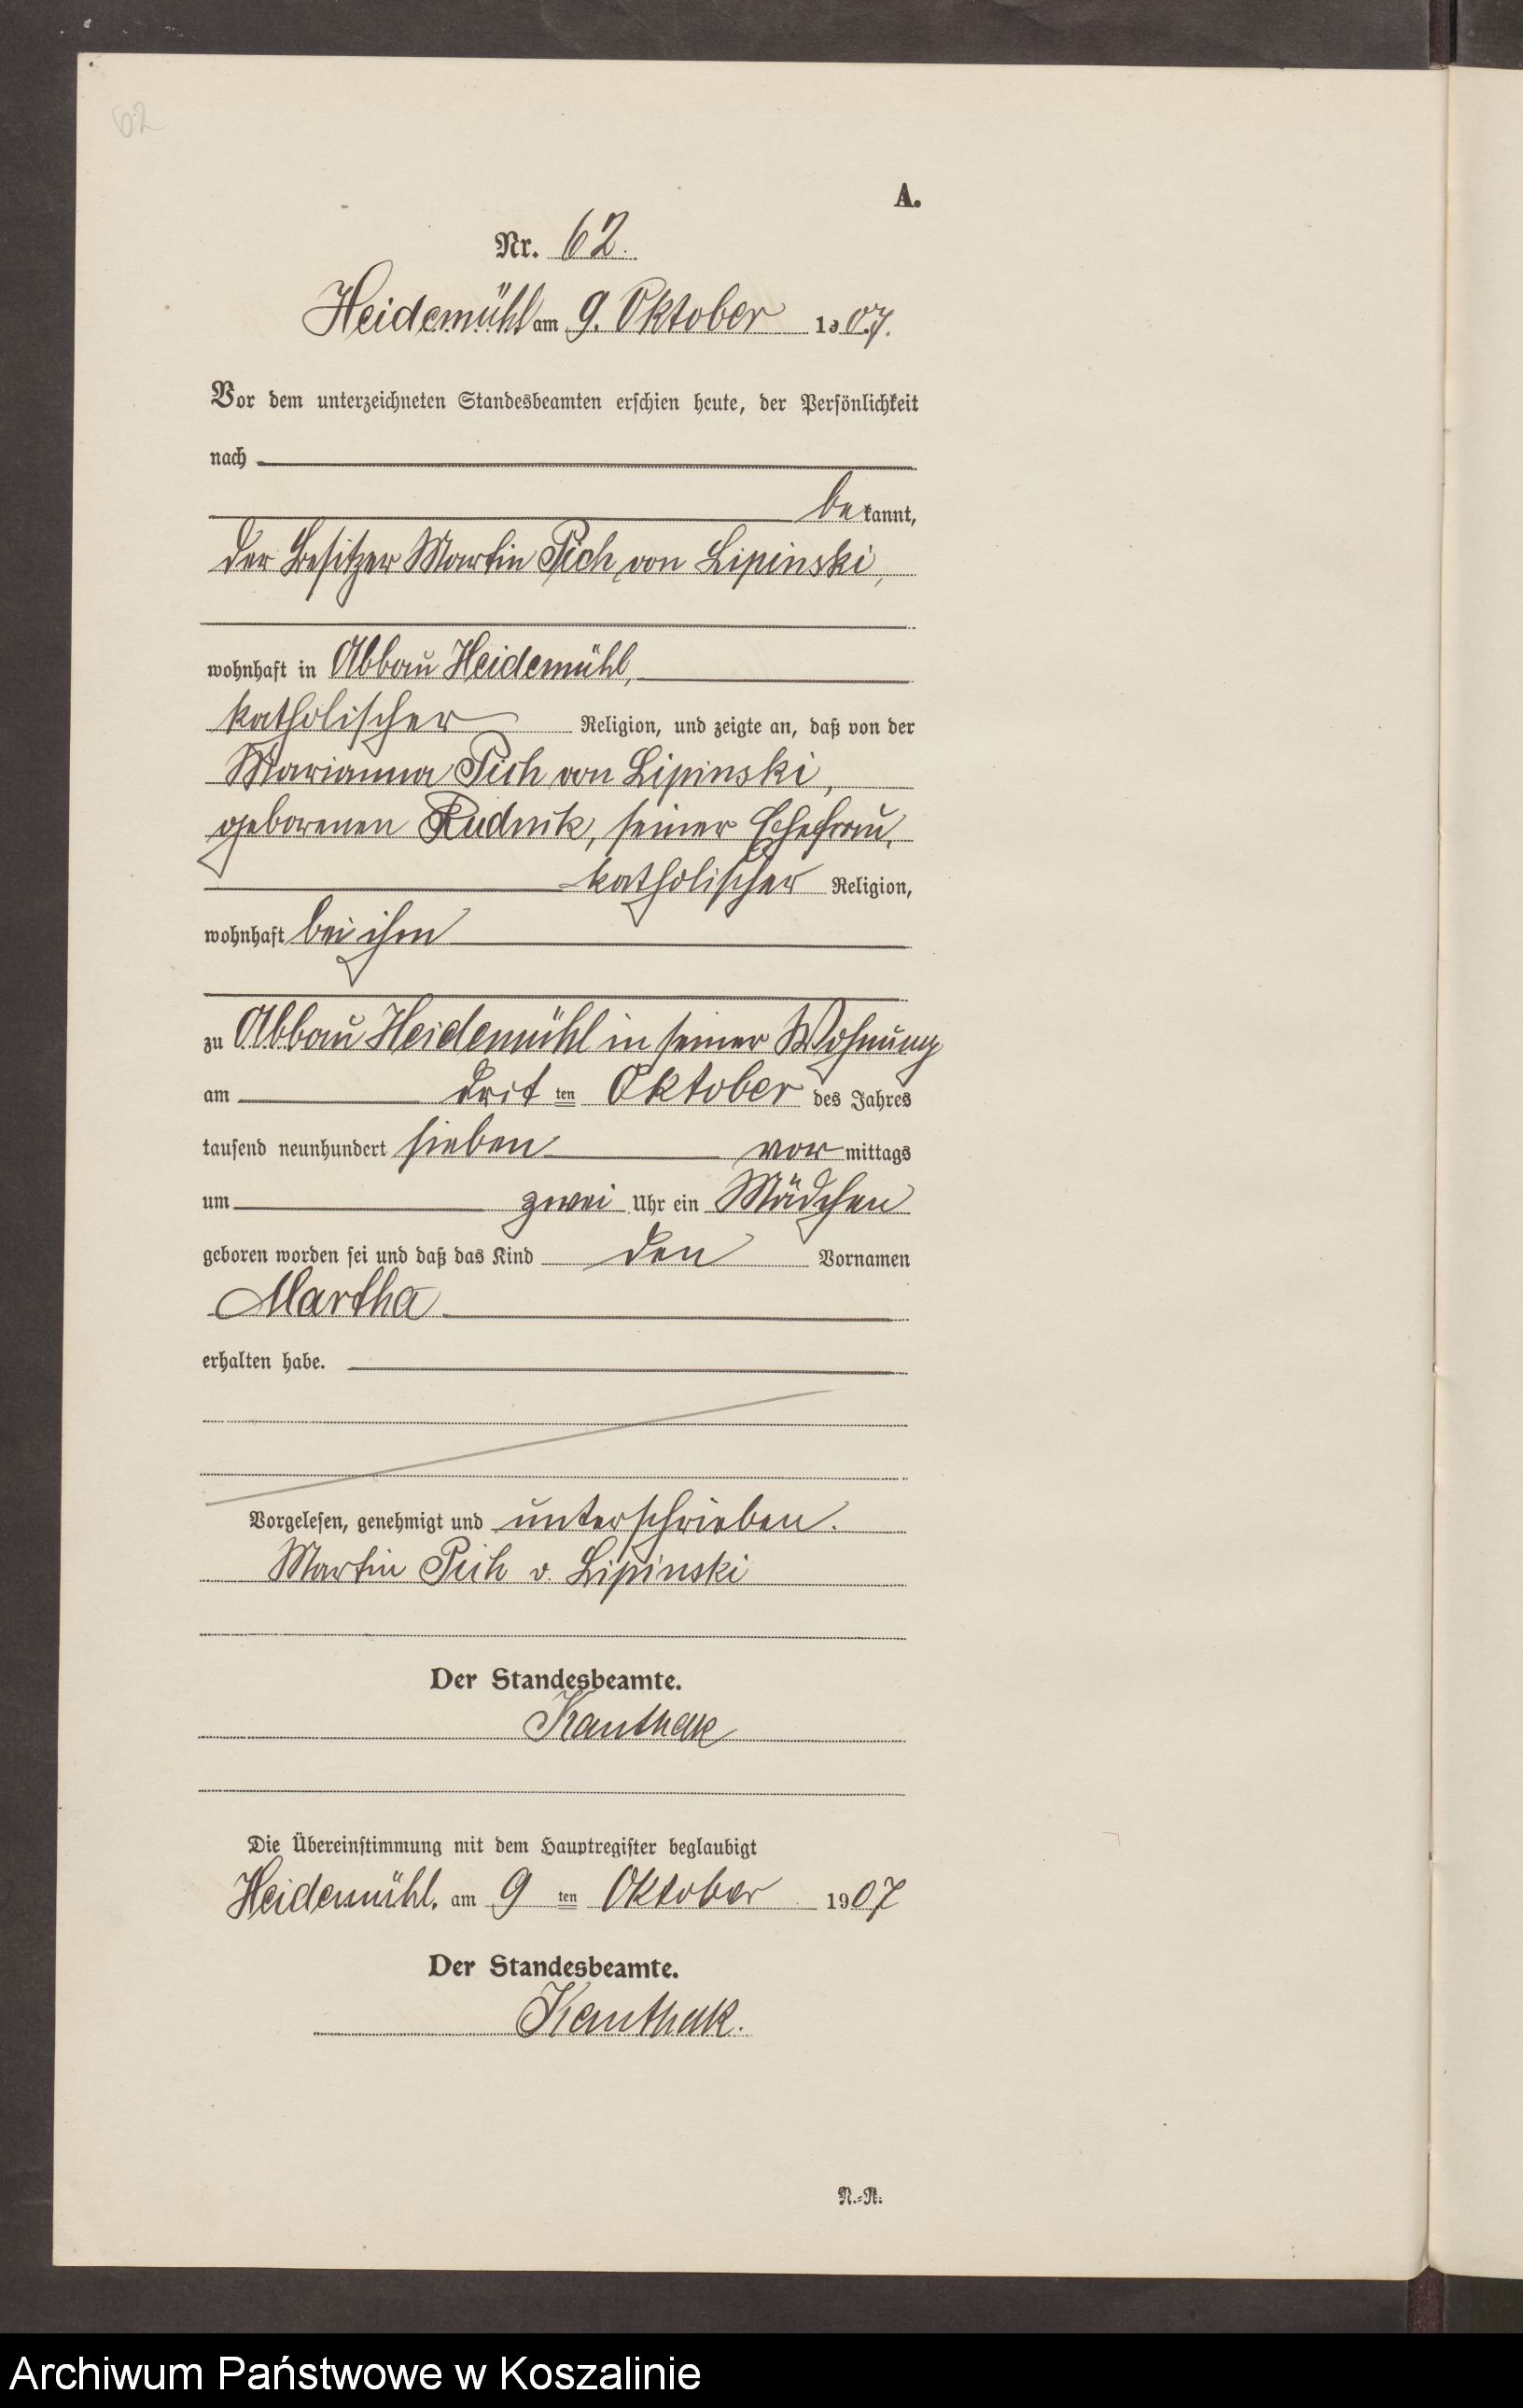 62
A.
Nr. 62.
Heidemühl am 9. Oktober 1907.
Vor dem unterzeichneten Standesbeamten erschien heute, der Persönlichkeit
nach
be kannt,
der Besitzer Martin Pich von Lipinski,
wohnhaft in Abbau Heidemühl,
katholischer Religion, und zeigte an, daß von der
Marianna Pich von Lipinski,
geborenen Rudnik, seiner Ehefrau,
katholischer Religion,
wohnhaft bei ihm
zu Abbau Heidemühl in seiner Wohnung
am drit ten Oktober des Jahres
tausend neunhundert sieben vor mittags
um zwei Uhr ein Mädchen
geboren worden sei und daß das Kind den Vornamen
Martha
erhalten habe.
Vorgelesen, genehmigt und unterschrieben.
Martin Pich v. Lipinski
Der Standesbeamte.
Kanthak
Die Übereinstimmung mit dem Hauptregister beglaubigt
Heidemühl, am 9 ten Oktober 1907
Der Standesbeamte.
Kanthak.
N.-R.
Archiwum Państwowe w Koszalinie